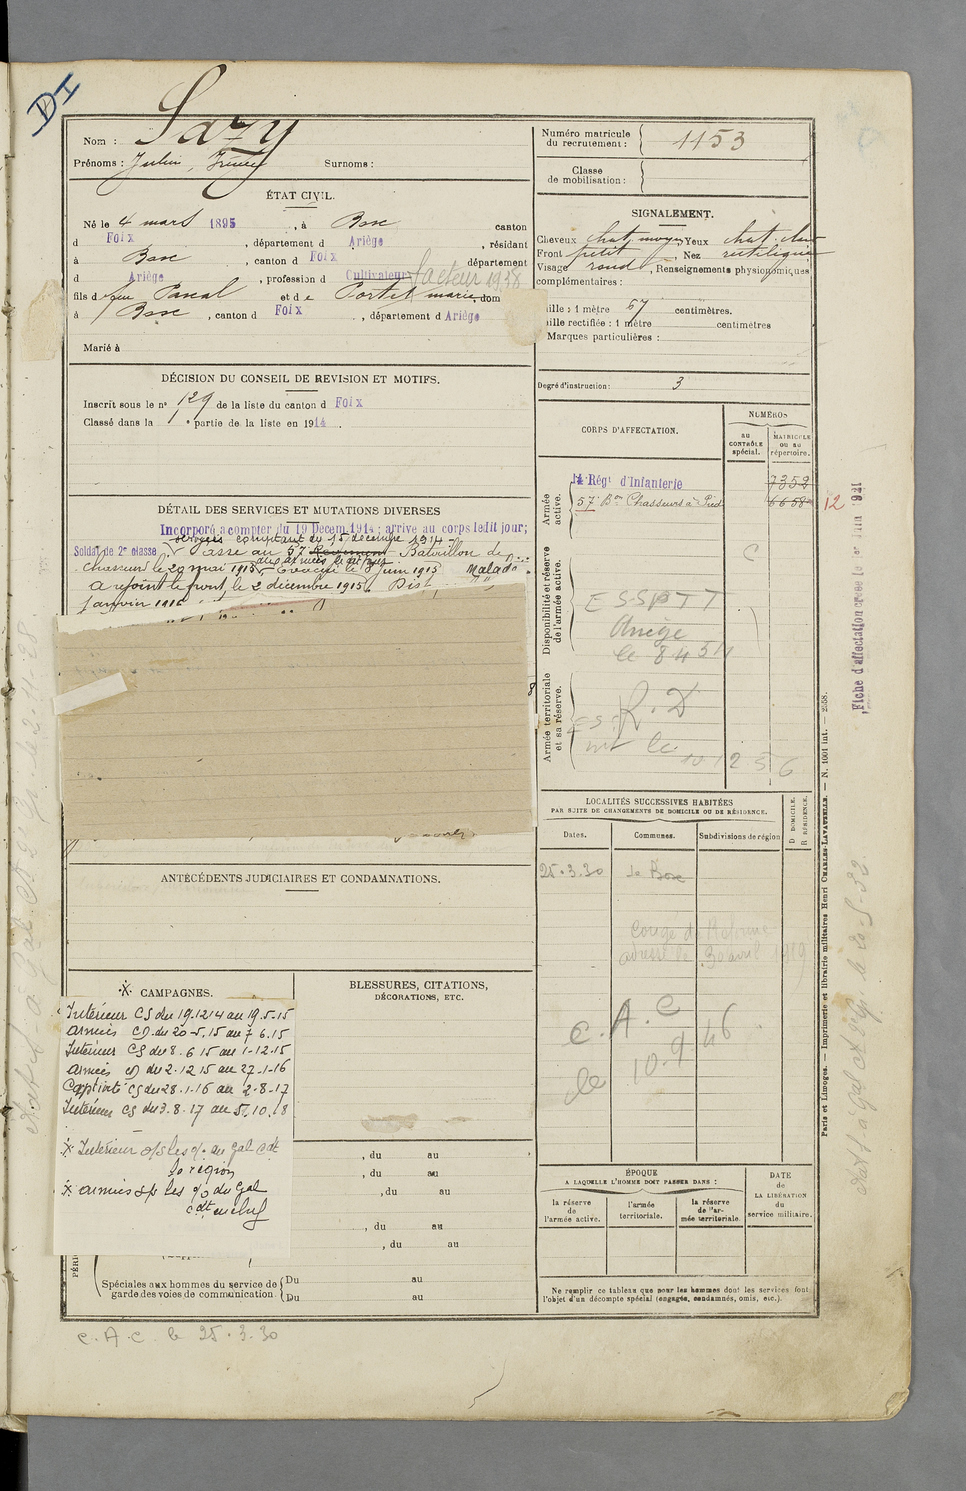 DI
Nom : Sazy
Prénoms : Julien, Irénée Surnoms :
ÉTAT CIVIL.
Né le 4 mars 1895, à Bosc canton
d Foix, département d Ariège, résidant
à Bosc, canton d Foix département
d Ariège, profession d Cultivateur facteur 1938
fils d feu Pascal et de Portet marie dom
à Bosc, canton d Foix, département d Ariège
Marié à
DÉCISION DU CONSEIL DE REVISION ET MOTIFS.
Inscrit sous le no 129 de la liste du canton d Foix
Classé dans la 1e partie de la liste en 1914.
DÉTAIL DES SERVICES ET MUTATIONS DIVERSES
Incorporé à compter du 19 Décem. 1914; arrivé au corps ledit jour;
services comptant du 15 décembre 1914.
Soldat de 2e classe Passé au 57 Régiment Bataillon de
Chasseurs le 20 mai 1915 aux armées le dit jour Évacué le 8 juin 1915 Malade
A rejoint le front, le 2 décembre 1915. Disp
janvier 1916
ANTÉCÉDENTS JUDICIAIRES ET CONDAMNATIONS.
CAMPAGNES.
Intérieur CS du 19.12 14 au 19.5.15
armées CD du 20-5.15 au 7 6.15
Intérieur CS du 8.6 15 au 1-12.15
armées CD du 2.12 15 au 27-1-16
Captivité CS du 28.1-16 au 2-8-17
Intérieur CS du 3.8.17 au 5.10.18
Intérieur o/s les o/. du Gal Cdt
la région
armées s/s les o/o du Gal
cdt en chef
BLESSURES, CITATIONS,
DÉCORATIONS, ETC.
, du au
, du au
, du au
, du au
, du au
Spéciales aux hommes du service de
garde des voies de communication.
Du au
Du au
C.A.C. le 25.3.30
Numéro matricule
du recrutement : 1153
Classe
de mobilisation :
SIGNALEMENT.
Cheveux chat. moyen Yeux chat. clair
Front petit, Nez rectiligne
Visage rond, Renseignements physionomiques
complémentaires :
Taille : 1 mètre 67 centimètres.
Taille rectifiée : 1 mètre centimètres
Marques particulières :
Degré d'instruction : 3
CORPS D'AFFECTATION.
NUMÉROS
AU CONTRÔLE spécial.
MATRICULE OU AU répertoire.
Armée active.
14 Régt d'Infanterie 7352
57 Bon Chasseurs à Pied 6658 12
Disponibilité et réserve de l'armée active.
C
ESSPTT
Ariège
le 8 4 51
Armée territoriale et sa réserve.
R.D
le
10 12 56
LOCALITÉS SUCCESSIVES HABITÉES
PAR SUITE DE CHANGEMENTS DE DOMICILE OU DE RÉSIDENCE.
Dates. Communes. Subdivisions de région
D DOMICILE.
R RÉSIDENCE.
25.3.30 Le Bosc
Congé de
adressé le 30 avril 1919
C.A.C
le 10.9 46
ÉPOQUE
A LAQUELLE L'HOMME DOIT PASSER DANS :
la réserve de l'armée active.
l'armée territoriale.
la réserve de l'armée territoriale.
DATE
de
LA LIBÉRATION
du
service militaire.
Ne remplir ce tableau que pour les hommes dont les services font
l'objet d'un décompte spécial (engagés, condamnés, omis, etc.).
Paris et Limoges. — Imprimerie et librairie militaires Henri CHARLES-LAVAUZELLE. — N. 1001 int. — 2558.
Fiche d'affectation créée le 1er Juin 1921